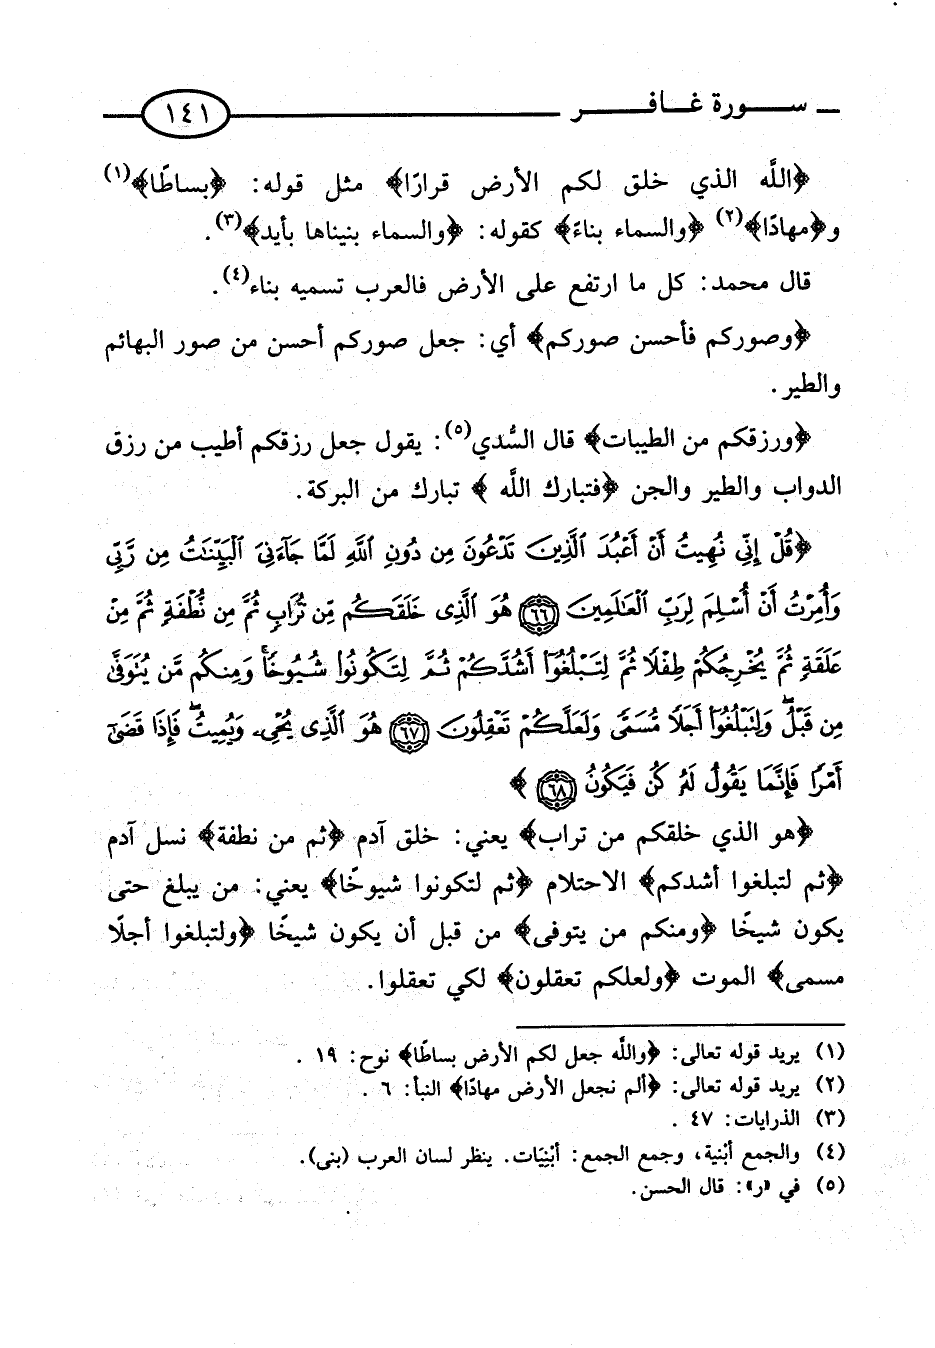 سورة غافر
١٤١
﴿اللَّه الذي خلق لكم الأرض قرارًا﴾ مثل قوله: ﴿بساطًا﴾(١)
و﴿مهادًا﴾(٢) ﴿والسماء بناءً﴾ كقوله: ﴿والسماء بنيناها بأيد﴾(٣).
قال محمد: كل ما ارتفع على الأرض فالعرب تسميه بناء(٤).
﴿وصوركم فأحسن صوركم﴾ أي: جعل صوركم أحسن من صور البهائم
والطير.
﴿ورزقكم من الطيبات﴾ قال السُّدي(٥): يقول جعل رزقكم أطيب من رزق
الدواب والطير والجن ﴿فتبارك اللَّه ﴾ تبارك من البركة.
﴿قُلْ إِنِّي نُهِيتُ أَنْ أَعْبُدَ الَّذِينَ تَدْعُونَ مِن دُونِ اللَّهِ لَمَّا جَآءَنِيَ الْبَيِّنَٰتُ مِن رَّبِّي
وَأُمِرْتُ أَنْ أُسْلِمَ لِرَبِّ الْعَٰلَمِينَ ٦٦ هُوَ الَّذِي خَلَقَكُم مِّن تُرَابٍ ثُمَّ مِن نُّطْفَةٍ ثُمَّ مِنْ
عَلَقَةٍ ثُمَّ يُخْرِجُكُمْ طِفْلًا ثُمَّ لِتَبْلُغُوٓا أَشُدَّكُمْ ثُمَّ لِتَكُونُوا شُيُوخًا ۚ وَمِنكُم مَّن يُتَوَفَّىٰ
مِن قَبْلُ ۖ وَلِتَبْلُغُوٓا أَجَلًا مُّسَمًّى وَلَعَلَّكُمْ تَعْقِلُونَ ٦٧ هُوَ الَّذِي يُحْيِۦ وَيُمِيتُ ۖ فَإِذَا قَضَىٰٓ
أَمْرًا فَإِنَّمَا يَقُولُ لَهُۥ كُن فَيَكُونُ ٦٨ ﴾
﴿هو الذي خلقكم من تراب﴾ يعني: خلق آدم ﴿ثم من نطفة﴾ نسل آدم
﴿ثم لتبلغوا أشدكم﴾ الاحتلام ﴿ثم لتكونوا شيوخًا﴾ يعني: من يبلغ حتى
يكون شيخًا ﴿ومنكم من يتوفى﴾ من قبل أن يكون شيخًا ﴿ولتبلغوا أجلًا
مسمى﴾ الموت ﴿ولعلكم تعقلون﴾ لكي تعقلوا.
(١) يريد قوله تعالى: ﴿واللَّه جعل لكم الأرض بساطًا﴾ نوح: ١٩ .
(٢) يريد قوله تعالى: ﴿ألم نجعل الأرض مهادًا﴾ النبأ: ٦ .
(٣) الذرايات: ٤٧ .
(٤) والجمع أبْنية، وجمع الجمع: أبْنِيَات. ينظر لسان العرب (بنى).
(٥) في «ر»: قال الحسن.